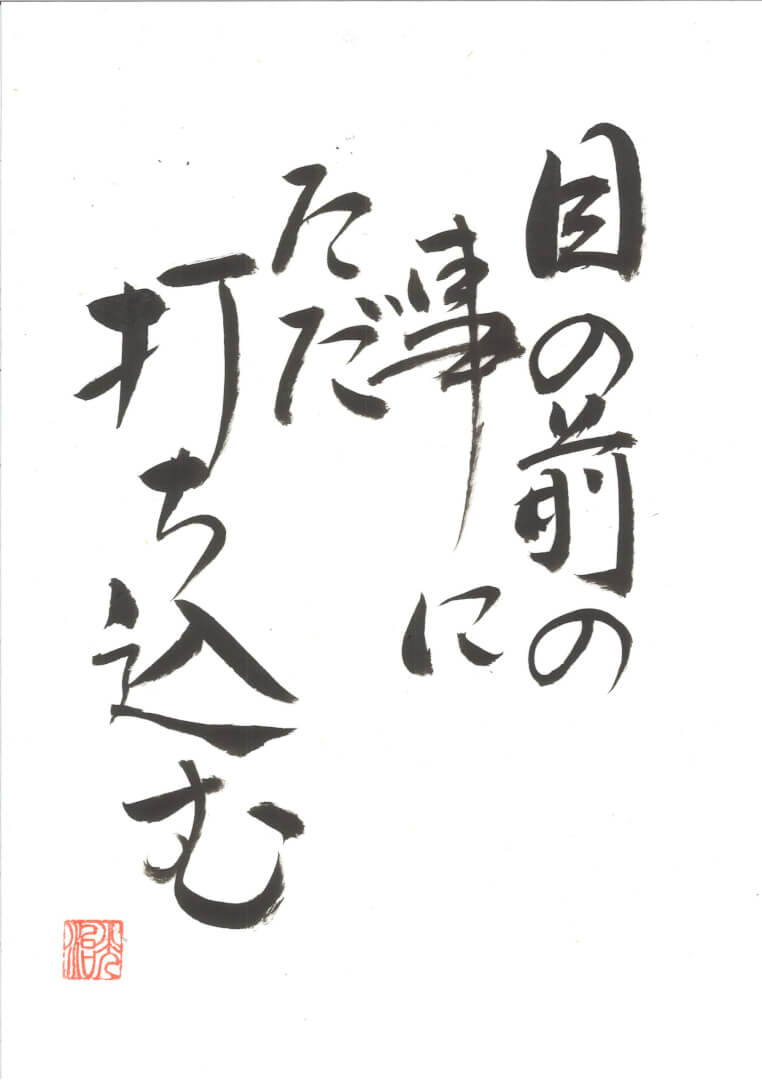 目の前の
事に
ただ
打ち込む